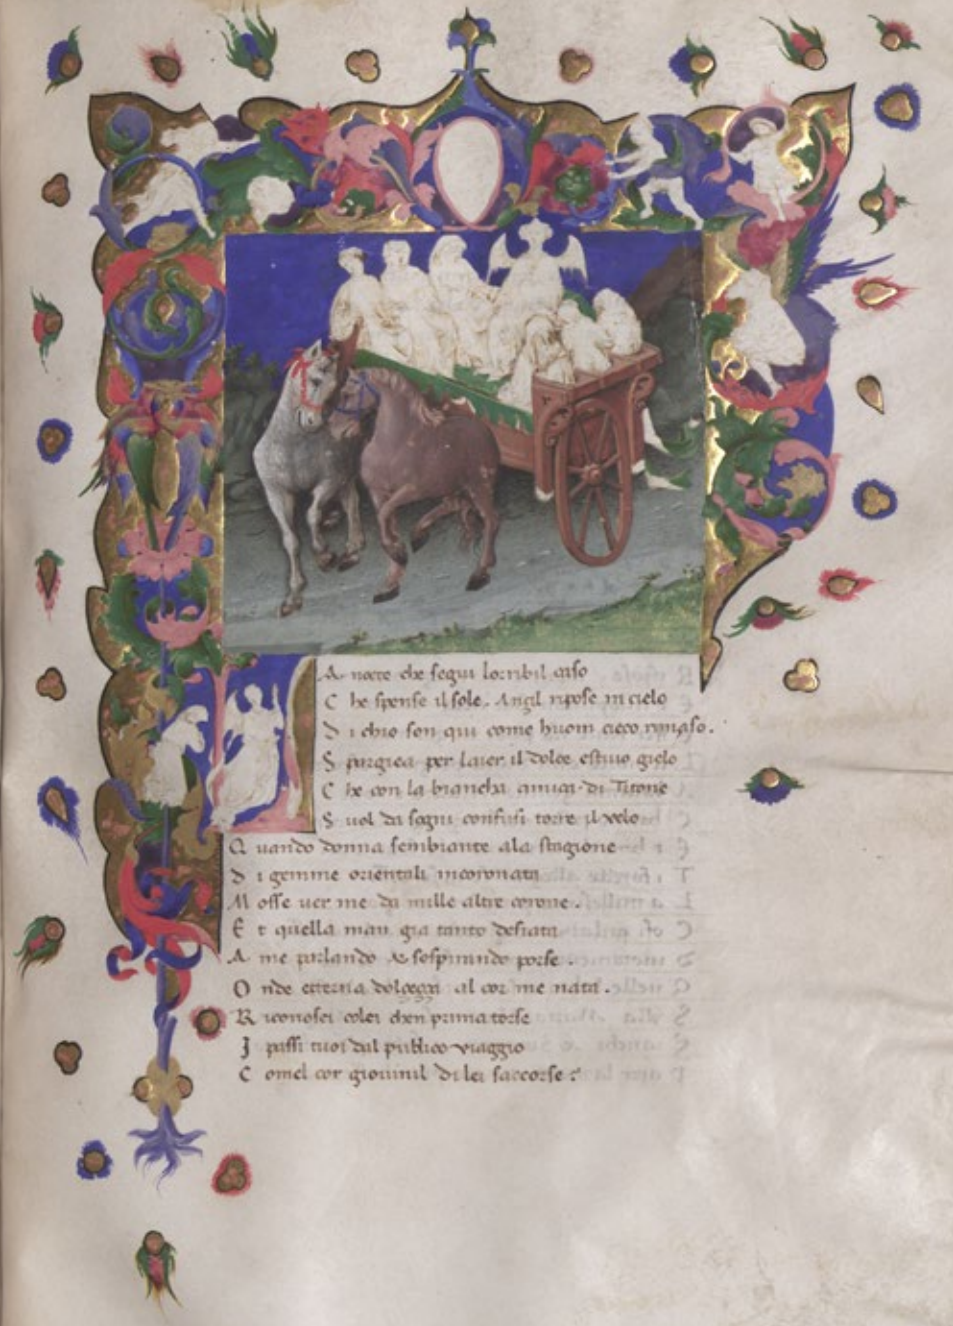 A nocte che segui lorribil caso
C he spense il sole. Anzil ripose in cielo
D i chio son qui come huom cieco rimaso.
S pargiea per laier il dolce estiuo gielo
C he con la biancha amica di Titone
S uol da sogni confusi torre il velo
Q uando donna sembiante ala stagione
D i gemme orientali incoronata
M osse uer me da mille altre corone.
E t quella man gia tanto desiata
A me parlando & sospirando porse.
O nde etterna dolcezza al cor me nata.
R iconosci colei chen prima torse
I passi tuoi dal publico viaggio
C omel cor giouinil di lei saccorse?